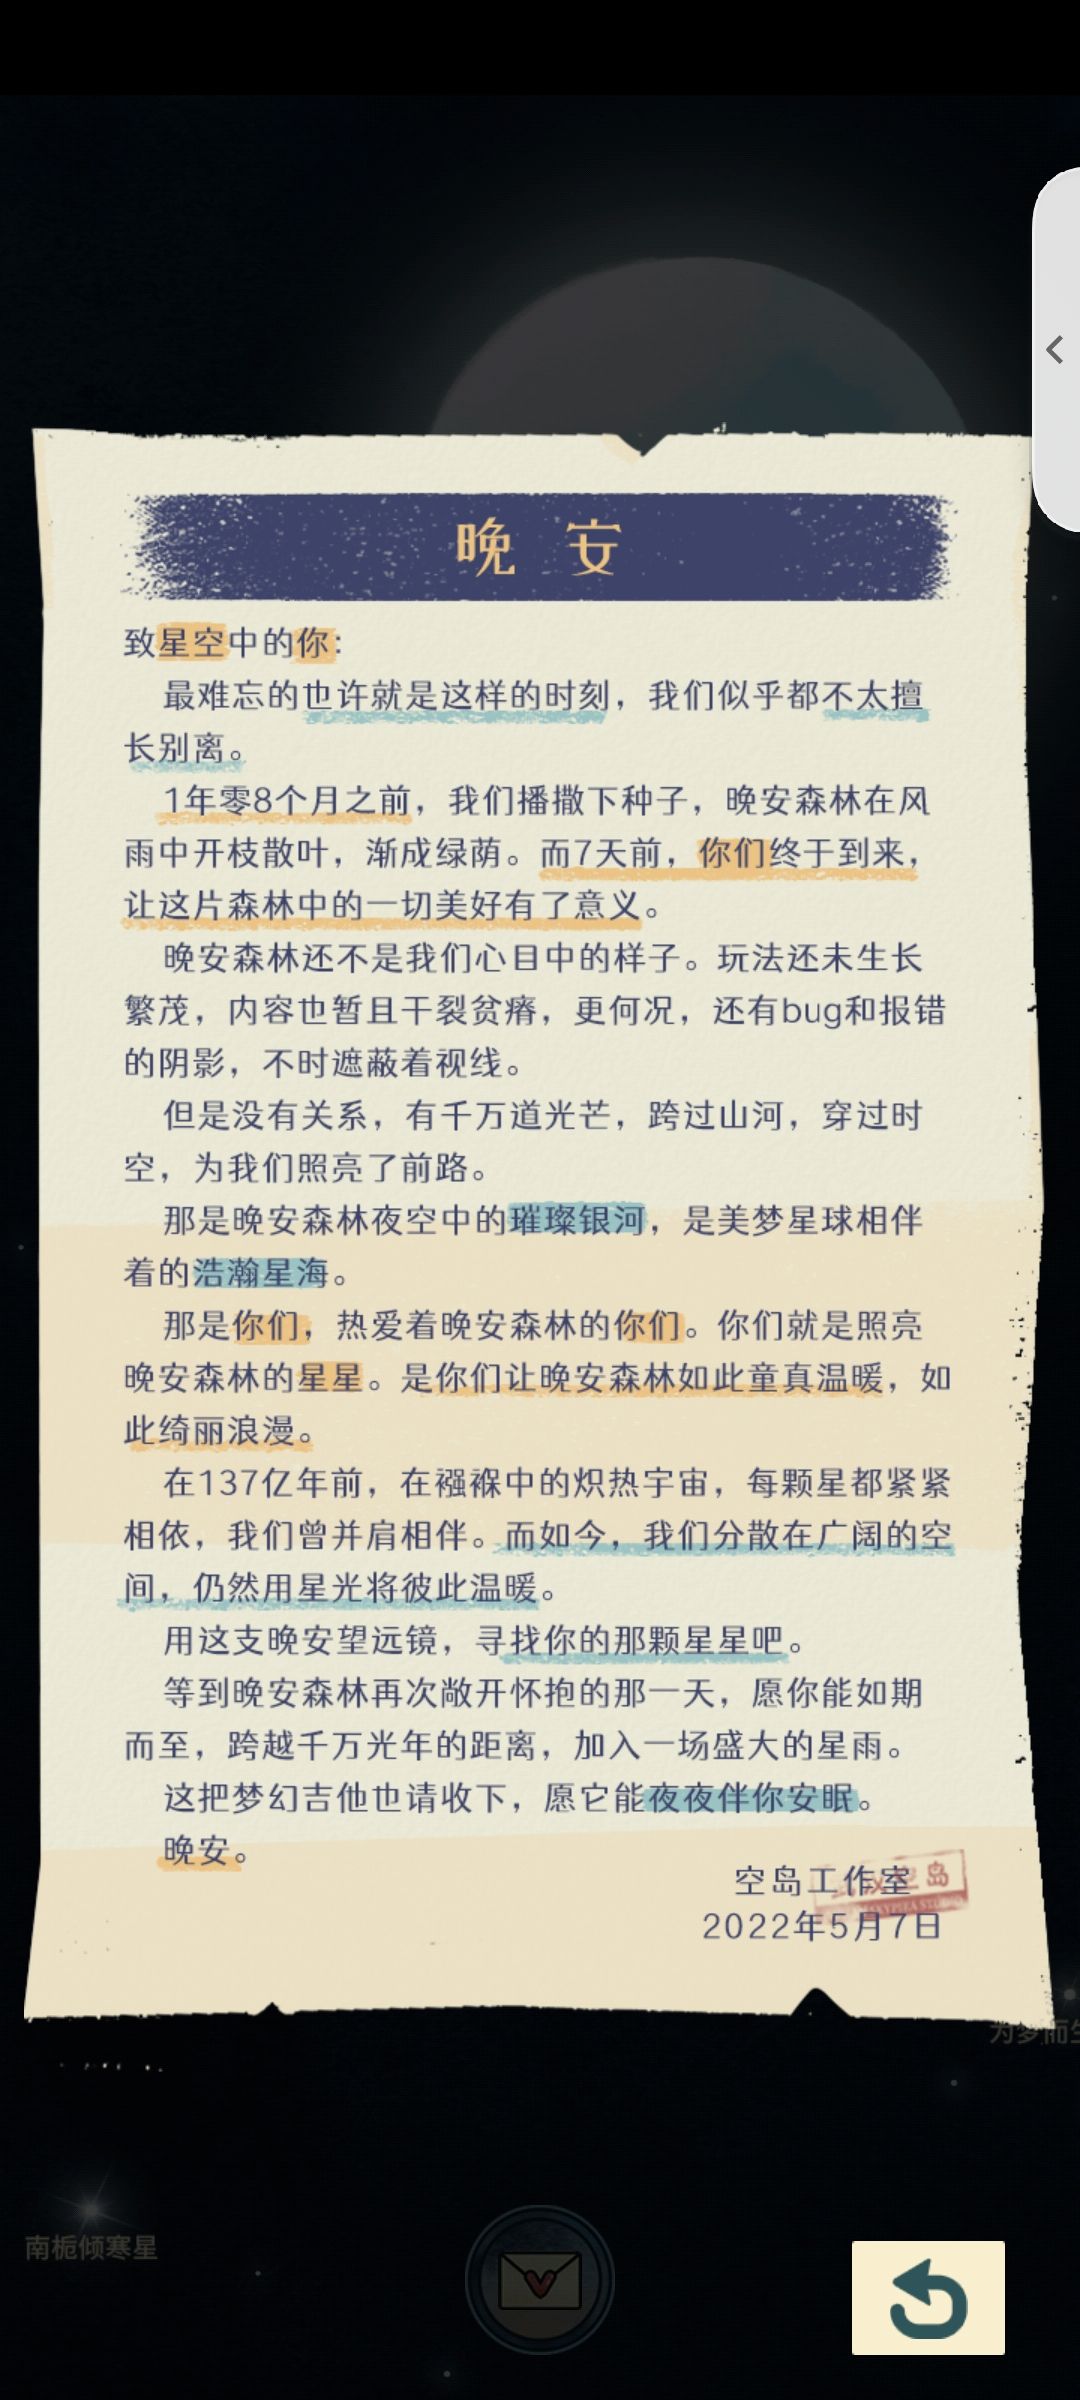 晚 安
致星空中的你:
最难忘的也许就是这样的时刻，我们似乎都不太擅
长别离。
1年零8个月之前，我们播撒下种子，晚安森林在风
雨中开枝散叶，渐成绿荫。而7天前，你们终于到来，
让这片森林中的一切美好有了意义。
晚安森林还不是我们心目中的样子。玩法还未生长
繁茂，内容也暂且干裂贫瘠，更何况，还有bug和报错
的阴影，不时遮蔽着视线。
但是没有关系，有千万道光芒，跨过山河，穿过时
空，为我们照亮了前路。
那是晚安森林夜空中的璀璨银河，是美梦星球相伴
着的浩瀚星海。
那是你们，热爱着晚安森林的你们。你们就是照亮
晚安森林的星星。是你们让晚安森林如此童真温暖，如
此绮丽浪漫。
在137亿年前，在襁褓中的炽热宇宙，每颗星都紧紧
相依，我们曾并肩相伴。而如今，我们分散在广阔的空
间，仍然用星光将彼此温暖。
用这支晚安望远镜，寻找你的那颗星星吧。
等到晚安森林再次敞开怀抱的那一天，愿你能如期
而至，跨越千万光年的距离，加入一场盛大的星雨。
这把梦幻吉他也请收下，愿它能夜夜伴你安眠。
晚安。
空岛工作室
武汉空岛
2022年5月7日
为梦而生
南栀倾寒星